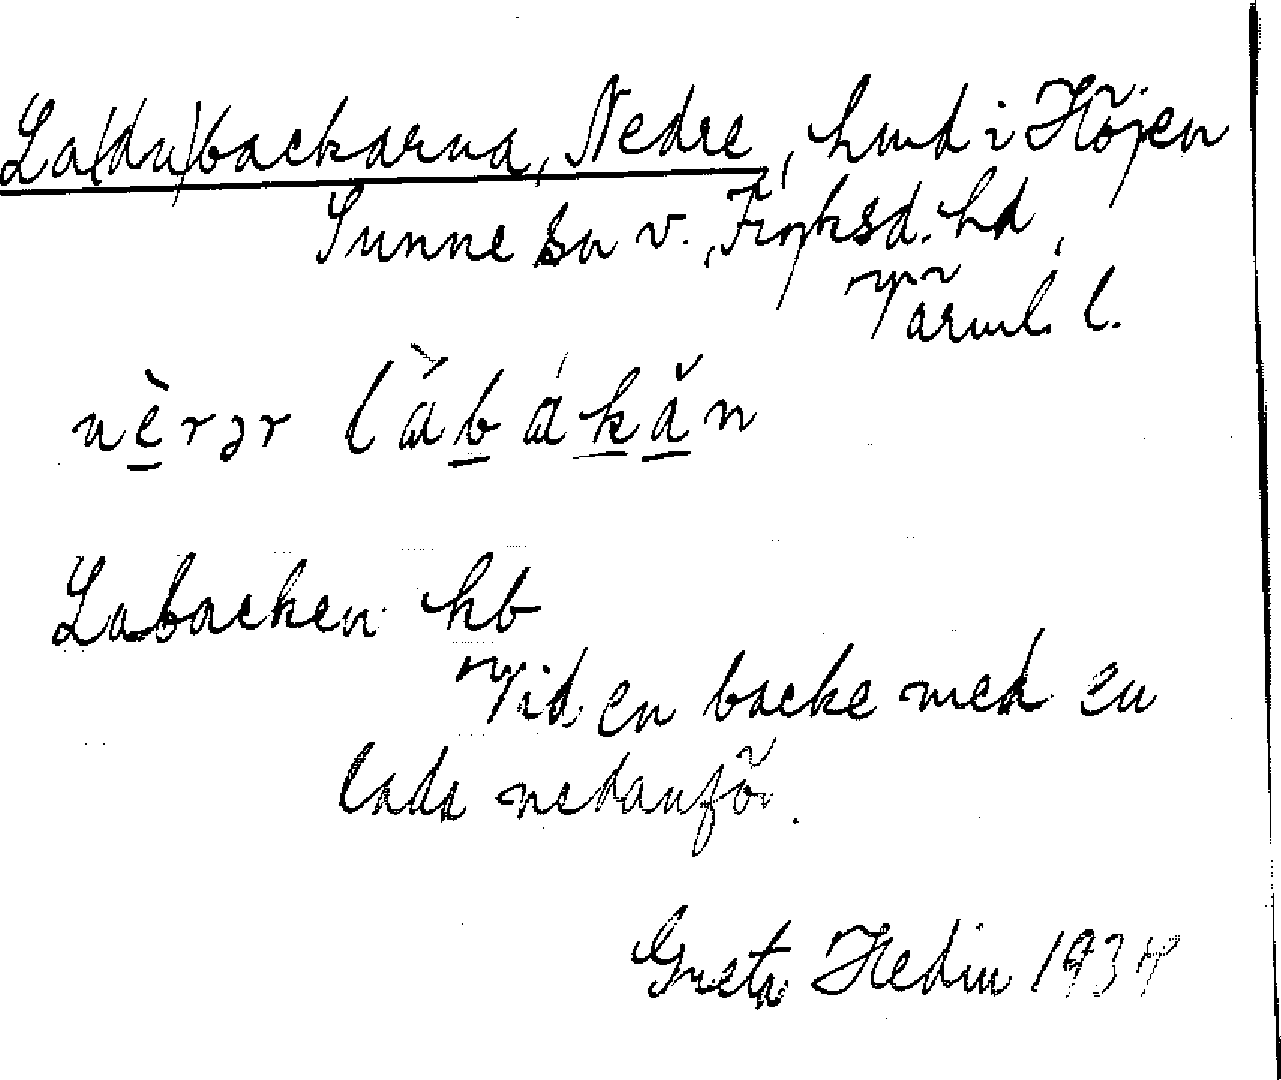 La(du)backarna, Nedre, hmd i Höjen
Sunne sn v., Fryksd. hd,
Värml. l.
nèrər làbákăn
Labacken hb
Vid en backe med en
lada nedanför.
Greta Hedin 1934